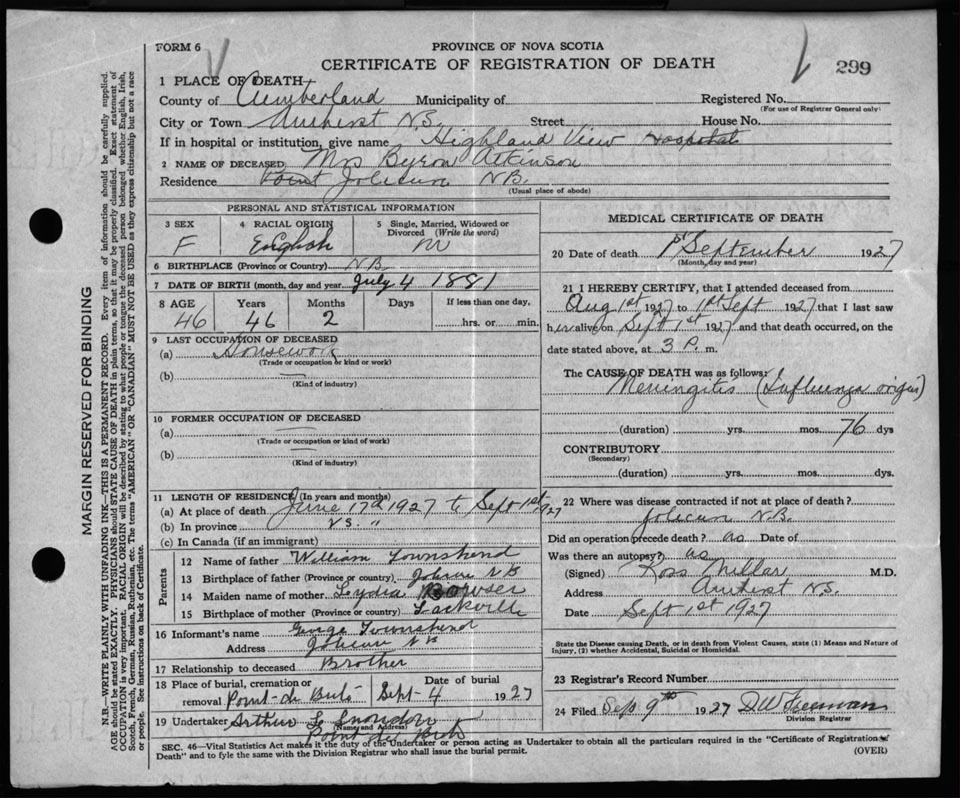 FORM 6
PROVINCE OF NOVA SCOTIA
CERTIFICATE OF REGISTRATION OF DEATH
299
1 PLACE OF DEATH
County of Cumberland Municipality of
Registered No.
(For use of Registrar General only)
City or Town Amherst N.S. Street House No.
If in hospital or institution, give name Highland View Hospital
2 NAME OF DECEASED Mrs Byron Atkinson
Residence Point Jolicure NB
(Usual place of abode)
PERSONAL AND STATISTICAL INFORMATION
3 SEX F
4 RACIAL ORIGIN English
5 Single, Married, Widowed or Divorced (Write the word) M
6 BIRTHPLACE (Province or Country) NB
7 DATE OF BIRTH (month, day and year) July 4 1881
8 AGE 46 Years 46 Months 2 Days If less than one day, hrs. or min.
9 LAST OCCUPATION OF DECEASED
(a) Housework
(Trade or occupation or kind of work)
(b) —
(Kind of industry)
10 FORMER OCCUPATION OF DECEASED
(a) —
(Trade or occupation or kind of work)
(b) —
(Kind of industry)
11 LENGTH OF RESIDENCE (In years and months)
(a) At place of death June 17th 1927 to Sept 1st 1927
(b) In province
(c) In Canada (if an immigrant)
Parents
12 Name of father William Townshend
13 Birthplace of father (Province or country) NB
14 Maiden name of mother Lydia Bowser
15 Birthplace of mother (Province or country) Sackville
16 Informant's name George Townshend
Address NB
17 Relationship to deceased Brother
18 Place of burial, cremation or removal Point-de Bute
Date of burial Sept-4 1927
19 Undertaker Arthur
(Name and Address)
Point de Bute
MEDICAL CERTIFICATE OF DEATH
20 Date of death 1st September 1927
(Month, day and year)
21 I HEREBY CERTIFY, that I attended deceased from
Aug 1st 1927 to 1st Sept 1927 that I last saw
her alive on Sept 1st 1927 and that death occurred, on the
date stated above, at 3 P. m.
The CAUSE OF DEATH was as follows:
Meningitis (Influenza origin)
(duration) yrs. mos. 76 dys
CONTRIBUTORY
(Secondary)
(duration) yrs. mos. dys.
22 Where was disease contracted if not at place of death?
N.B.
Did an operation precede death? Date of
Was there an autopsy?
(Signed) Ross Millar M.D.
Address Amherst N.S.
Date Sept 1st 1927
State the Disease causing Death, or in death from Violent Causes, state (1) Means and Nature of
Injury, (2) whether Accidental, Suicidal or Homicidal.
23 Registrar's Record Number
24 Filed Sep 9th 1927
Division Registrar
SEC. 46—Vital Statistics Act makes it the duty of the Undertaker or person acting as Undertaker to obtain all the particulars required in the "Certificate of Registration of
Death" and to fyle the same with the Division Registrar who shall issue the burial permit.
(OVER)
MARGIN RESERVED FOR BINDING
N.B.—WRITE PLAINLY WITH UNFADING INK—THIS IS A PERMANENT RECORD. Every item of information should be carefully supplied.
AGE should be stated EXACTLY. PHYSICIANS should STATE CAUSE OF DEATH in plain terms, so that it may be properly classified. Exact statement of
OCCUPATION is very important. RACIAL ORIGIN will be described by stating to what people or tongue the deceased person belonged whether English, Irish,
Scotch, French, German, Russian, Ruthenian, etc. The terms "AMERICAN" OR "CANADIAN" MUST NOT BE USED as they express citizenship but not a race
or people. See instructions on back of Certificate.